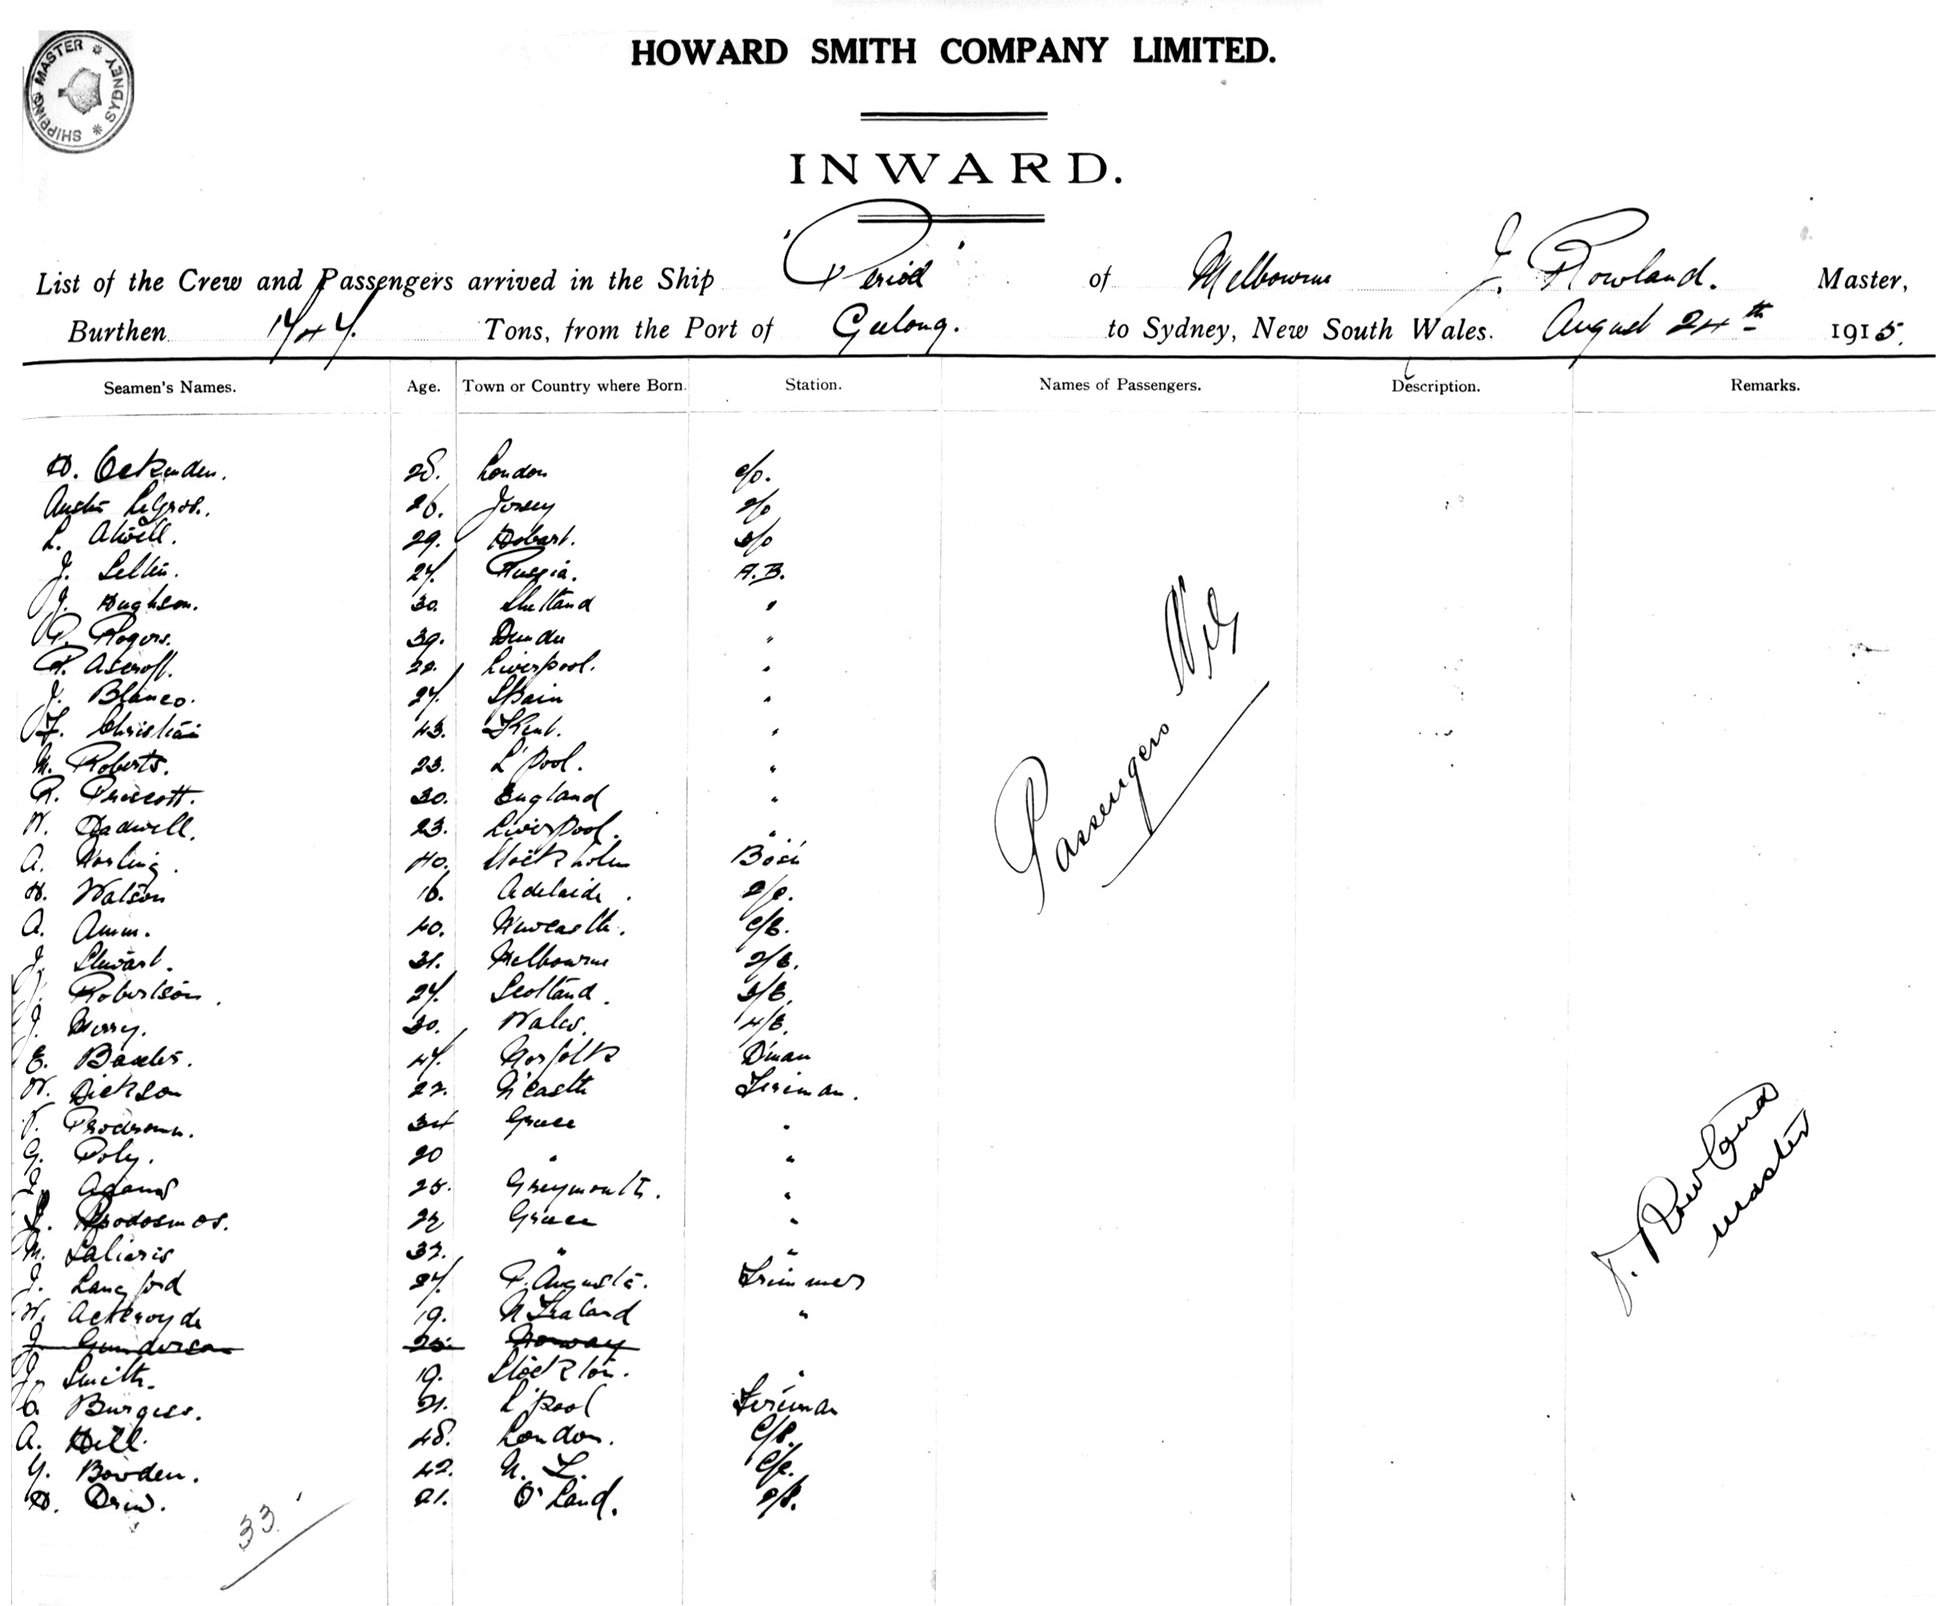 SHIPPING MASTER * SYDNEY *
HOWARD SMITH COMPANY LIMITED.
INWARD.
List of the Crew and Passengers arrived in the Ship "Period" of Melbourne J. Rowland. Master,
Burthen Tons, from the Port of Geelong. to Sydney, New South Wales. August 24th 1915.
Seamen's Names. Age. Town or Country where Born. Station. Names of Passengers. Description. Remarks.
H. Ockenden. 28. London c/o.
Austin LeGros. 26. Jersey 2/o
L. Atwell. 29. Hobart. 3/o
J. 27. Russia. A.B.
J. Hughson. 30. Shetland "
P. Rogers. 39. Dundee "
R. Ascroft. 22. Liverpool. "
J. Blanco. 27. Spain "
F. Christian 43. Kent. "
M. Roberts. 23. L'pool. "
R. Prescott. 30. England "
W. Dadwell. 23. Liverpool. "
A. Norling. 40. Stockholm Bosn
H. Watson 16. Adelaide.
A. Amm. 40. Newcastle. C/E.
J. Stewart. 31. Melbourne 2/E.
J. Robertson. 27. Scotland. 3/E.
J. Merry. 30. Wales. 4/E.
E. Baxter. 47. Norfolk D'man
W. Dickson 22. N'castle Fireman.
Prodromu. 34 Greece "
G. Poly. 20 " "
J. Adams 25. Greymouth. "
22 Greece "
M. Saliaris 32. " "
J. Langford 27. P. Augusta. Trimmer
W. Ackeroyde 19. N Zealand "
J Gunderson 25. Norway
J. Smith. 19. Stockton. "
C. Burgess. 21. L'pool Fireman
A. Hill. 48. London. C/S.
G. Bowden. 42. N. Z. C/c.
H. Drew. 21. Q'Land. 2/S.
33
Passengers Nil
J. Rowland
master